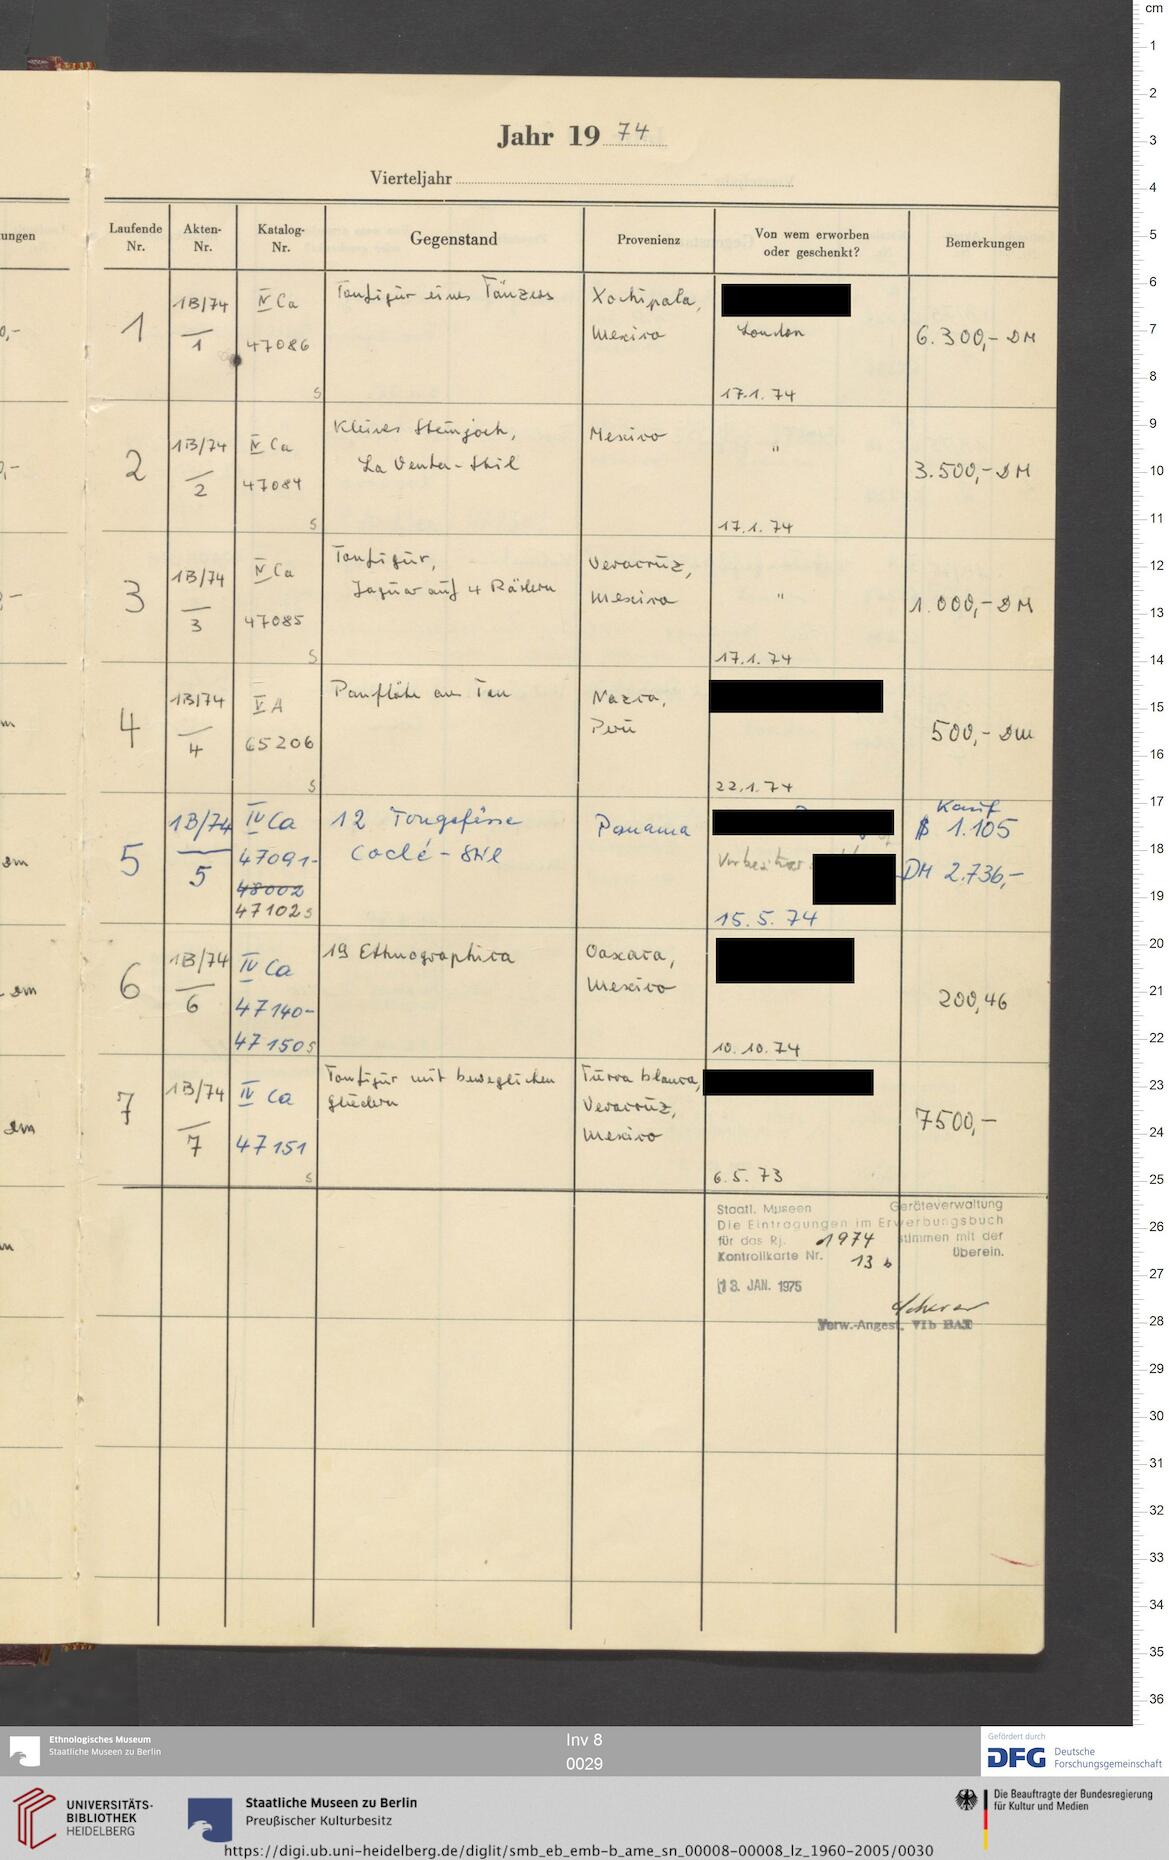 Jahr 19 74
Vierteljahr
ungen
Laufende Nr.
Akten-Nr.
Katalog-Nr.
Gegenstand
Provenienz
Von wem erworben oder geschenkt?
Bemerkungen
1
1B/74
1
IV Ca
47086
s
Tonfigur eines Tänzers
Xochipala,
Mexico
London
17.1.74
6.300,- DM
2
1B/74
2
IV Ca
47084
s
Kleines Steinjoch,
La Venta-Stil
Mexico
"
17.1.74
3.500,- DM
3
1B/74
3
IV Ca
47085
s
Tonfigur,
Jaguar auf 4 Rädern
Veracruz,
Mexico
"
17.1.74
1.000,- DM
4
1B/74
4
V A
65206
s
Panflöte aus Ton
Nazca,
Perú
22.1.74
500,- DM
5
1B/74
5
IV Ca
47091-
48002
47102 s
12 Tongefässe
Coclé-Stil
Panama
Vorbesitzer:
15.5.74
Kauf
$ 1.105
DM 2.736,-
6
1B/74
6
IV Ca
47140-
47150 s
19 Ethnographica
Oaxaca,
Mexico
10.10.74
200,46
7
1B/74
7
IV Ca
47151
s
Tonfigur mit beweglichen
Gliedern
Tierra blanca,
Veracruz,
Mexico
6.5.73
7500,-
Staatl. Museen Geräteverwaltung
Die Eintragungen im Erwerbungsbuch
für das Rj. 1974 stimmen mit der
Kontrollkarte Nr. 13 b überein.
13. JAN. 1975
Scherer
Verw.-Angest. VIb BAT
cm
1
2
3
4
5
6
7
8
9
10
11
12
13
14
15
16
17
18
19
20
21
22
23
24
25
26
27
28
29
30
31
32
33
34
35
36
Ethnologisches Museum
Staatliche Museen zu Berlin
Inv 8
0029
Gefördert durch
DFG Deutsche
Forschungsgemeinschaft
UNIVERSITÄTS-
BIBLIOTHEK
HEIDELBERG
Staatliche Museen zu Berlin
Preußischer Kulturbesitz
Die Beauftragte der Bundesregierung
für Kultur und Medien
https://digi.ub.uni-heidelberg.de/diglit/smb_eb_emb-b_ame_sn_00008-00008_lz_1960-2005/0030